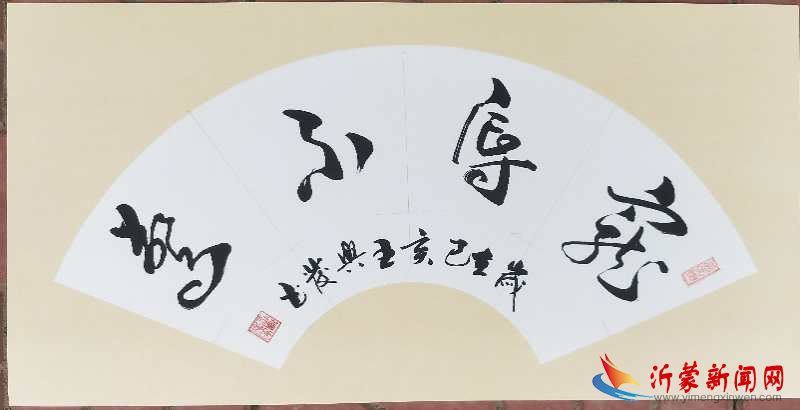 寵辱不驚
歲在己亥王興發书
沂蒙新闻网
www.yimengxinwen.com